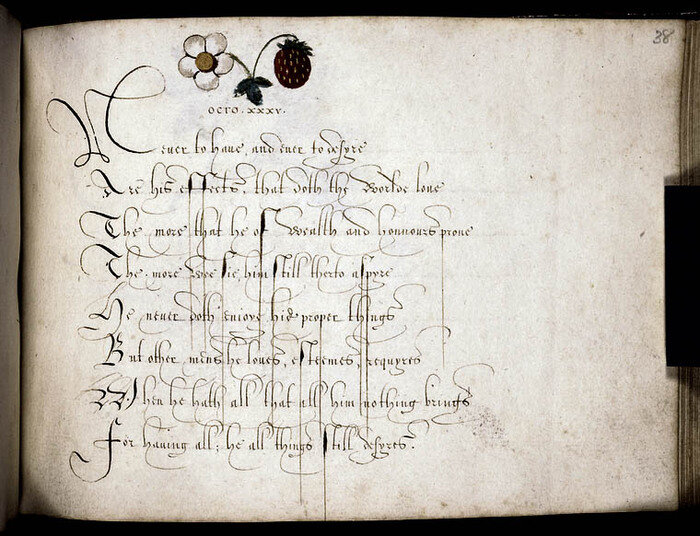 38
OCTO. XXXV.
Never to have, and ever to desyre
Are his effects, that doth the worlde love
The more that he of wealth and honnours prone
The more wee sie him still therto aspyre
He never doth enioye his proper things
But other mens he loves, esteemes, requyres
When he hath all that all him nothing brings
For having all; he all things still desyres.